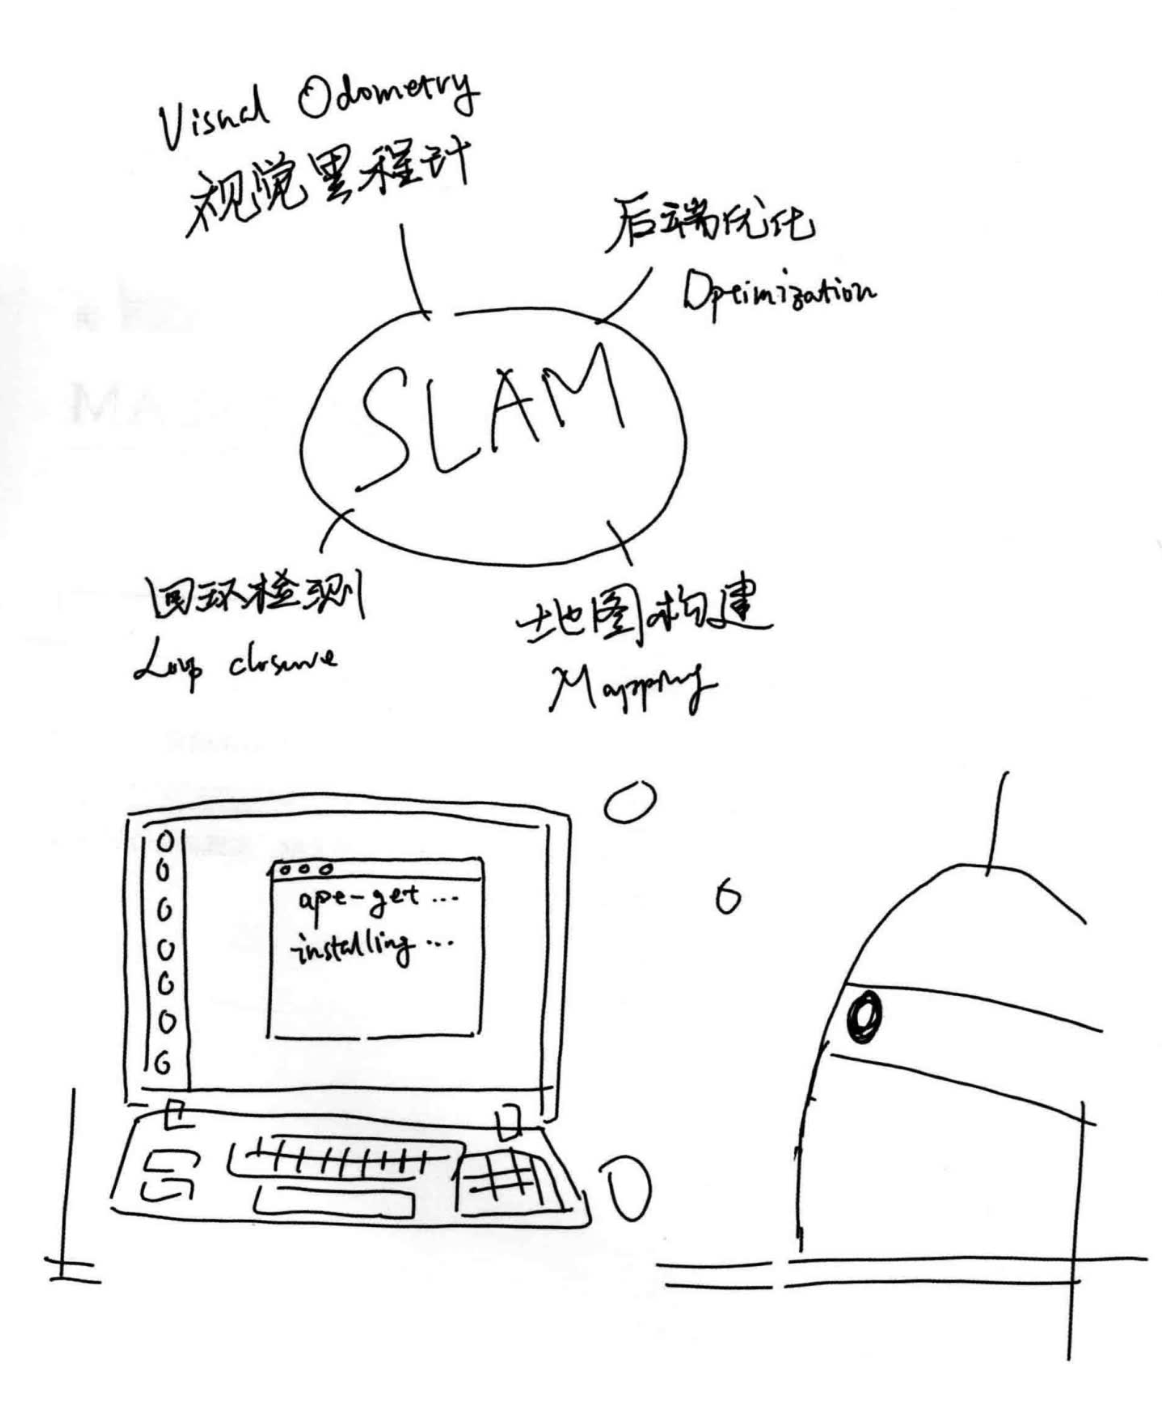 Visual Odometry
视觉里程计
后端优化
Optimization
SLAM
回环检测
Loop closure
地图构建
Mapping
apt-get ...
installing ...